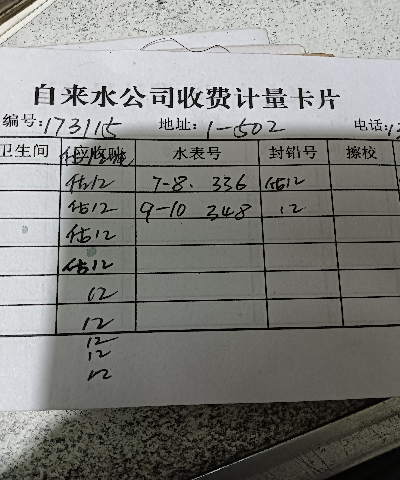 自来水公司收费计量卡片
编号: 173115 地址: 1-502 电话: 13
卫生间 应收吨 水表号 封铅号 擦校
估12 7-8. 336 估12
估12 9-10 348 12
估12
估12
12
12
12
12
12